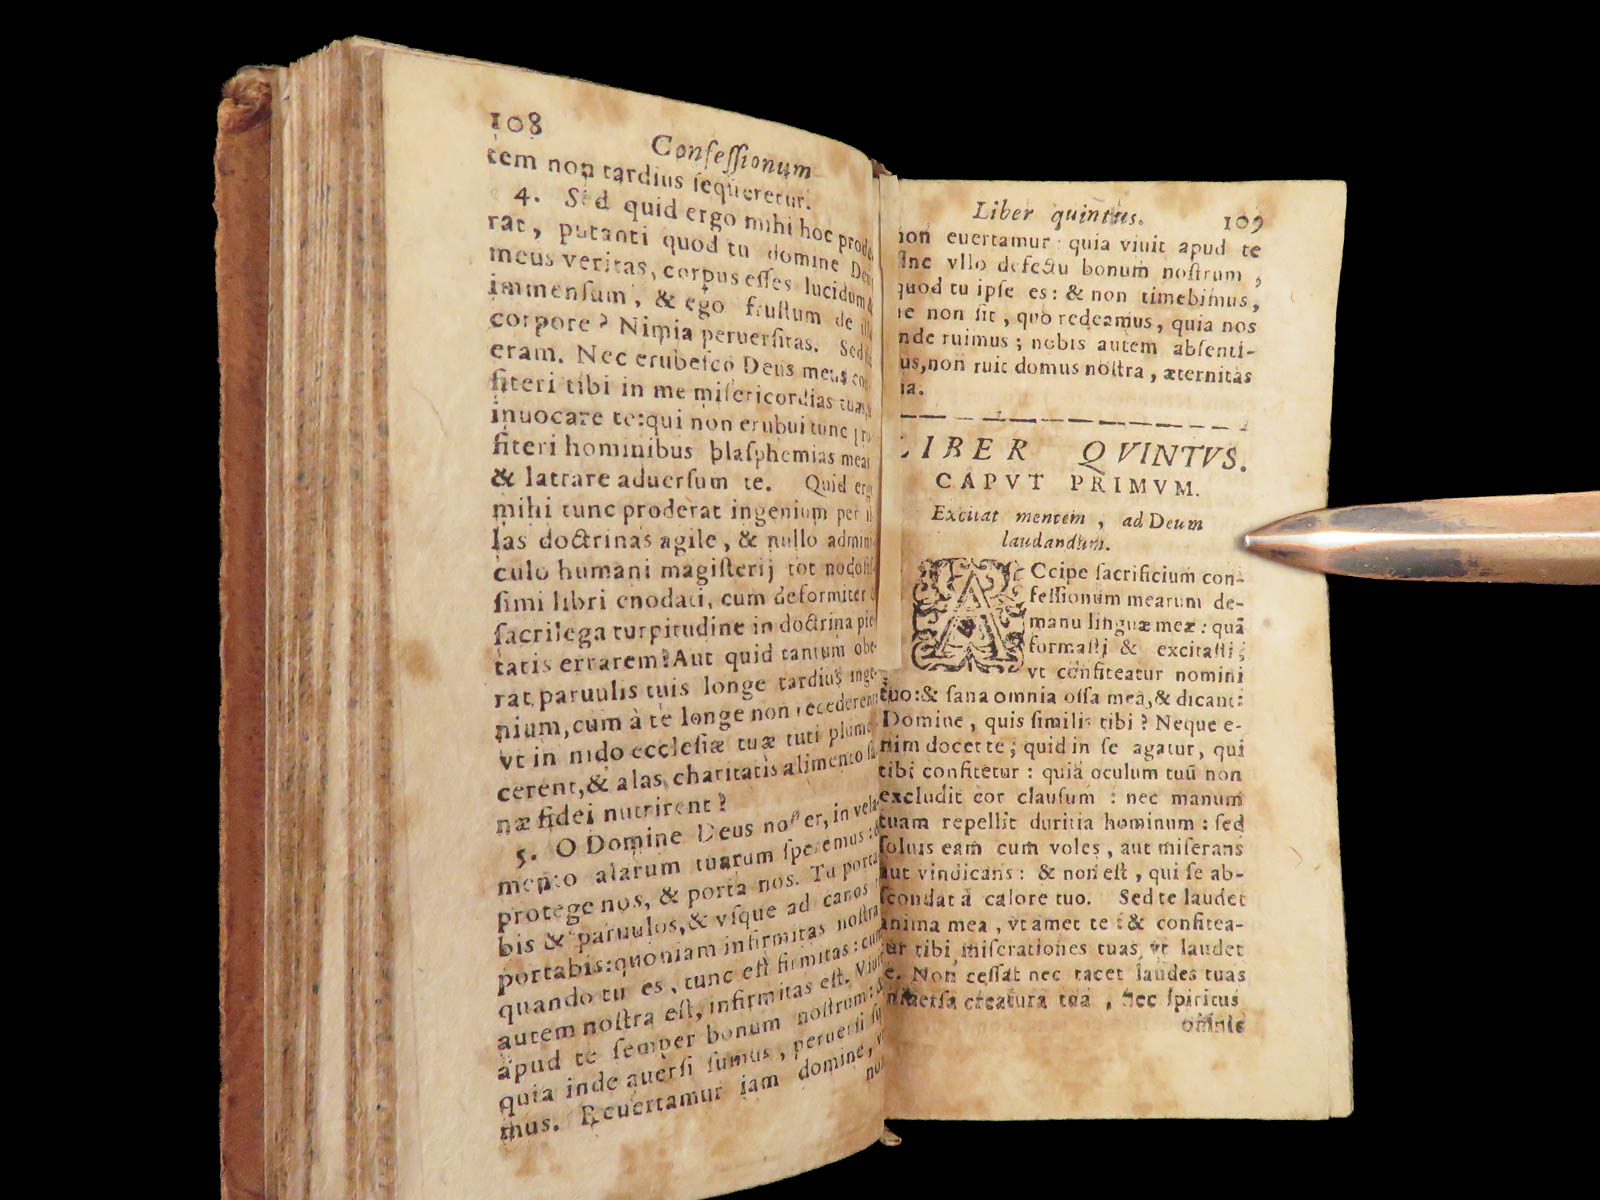 108
Confessionum
tem non tardius ſequeretur.
4. Sed quid ergo mihi hoc prode
rat, putanti quod tu domine De
meus veritas, corpus eſſes lucidum &
immenſum, & ego fruſtum de ill
corpore? Nimia peruerſitas. Sed
eram. Nec erubeſco Deus meus con
fiteri tibi in me miſericordias tuas, &
inuocare te: qui non erubui tunc pro
fiteri hominibus blaſphemias mea
& latrare aduerſum te. Quid erg
mihi tunc proderat ingenium per il
las doctrinas agile, & nullo admini
culo humani magiſterij tot nodoſiſ
ſimi libri enodati, cum deformiter &
ſacrilega turpitudine in doctrina pie
tatis errarem? Aut quid tantum obe
rat paruulis tuis longe tardius inge
nium, cum à te longe non recederent
vt in nido eccleſiæ tuæ tuti plume
cerent, & alas charitatis alimento ſa
næ fidei nutrirent?
5. O Domine Deus noſter, in vela
mento alarum tuarum ſperemus: &
protege nos, & porta nos. Tu porta
bis & paruulos, & vſque ad canos
portabis: quoniam infirmitas noſtra
quando tu es, tunc eſt firmitas: cum
autem noſtra eſt, infirmitas eſt. Viuit
apud te ſemper bonum noſtrum: &
quia inde auerſi ſumus, peruerſi ſu
mus. Reuertamur iam domine, v
non
Liber quintus.
109
non euertamur: quia viuit apud te
ſine vllo defectu bonum noſtrum,
quod tu ipſe es: & non timebimus,
ne non ſit, quo redeamus, quia nos
nde ruimus; nobis autem abſenti-
us, non ruit domus noſtra, æternitas
ua.
LIBER QVINTVS.
CAPVT PRIMVM.
Excitat mentem, ad Deum
laudandum.
ACcipe ſacrificium con-
feſſionum mearum de-
manu linguæ meæ: quã
formaſti & excitaſti;
vt cõfiteatur nomini
tuo: & ſana omnia oſſa mea, & dicant:
Domine, quis ſimilis tibi? Neque e-
nim docet te; quid in ſe agatur, qui
tibi confitetur: quia oculum tuũ non
excludit cor clauſum: nec manum
tuam repellit duritia hominum: ſed
ſoluis eam cum voles, aut miſerans
aut vindicans: & non eſt, qui ſe ab-
ſcondat à calore tuo. Sed te laudet
anima mea, vt amet te: & confitea-
ur tibi miſerationes tuas vt laudet
e. Non ceſſat nec tacet laudes tuas
niuerſa creatura tua, nec ſpiritus
omnis